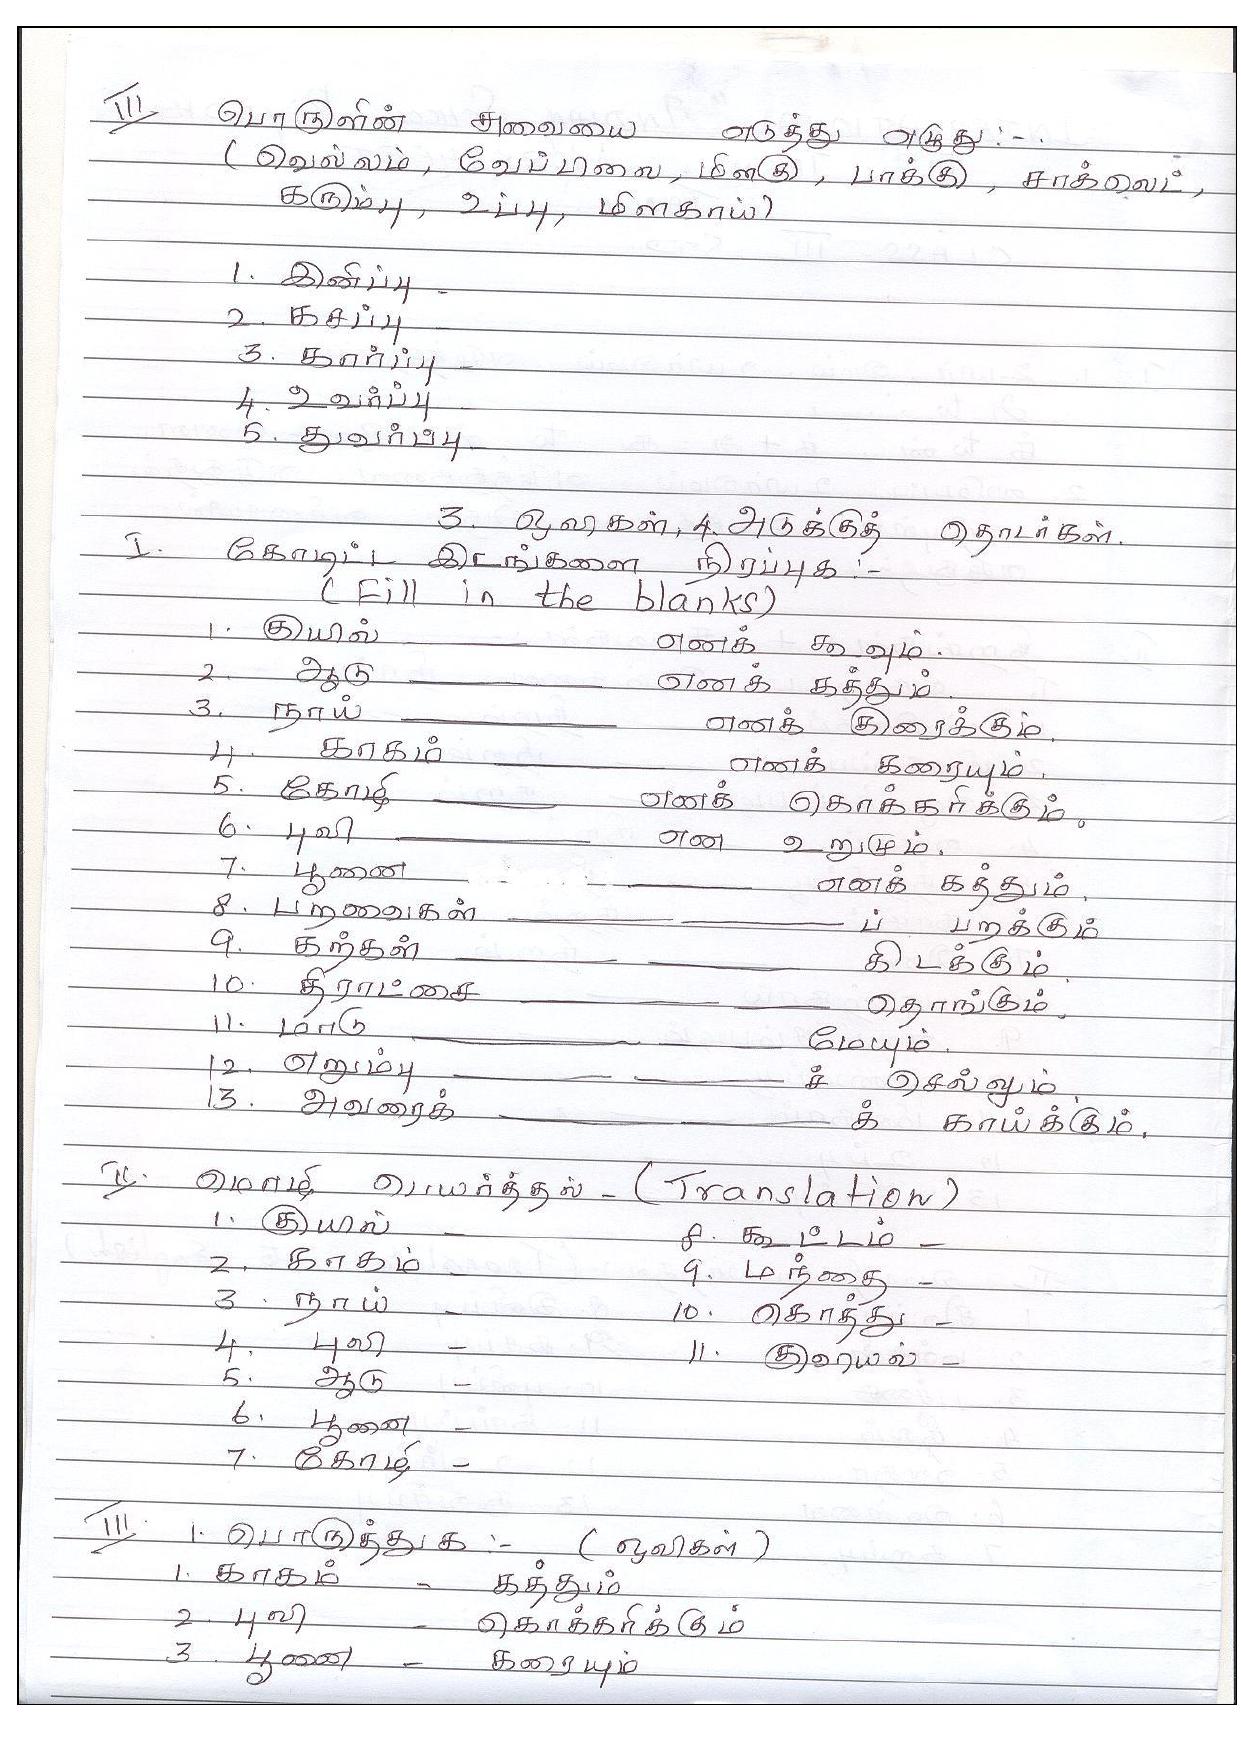 III பொருளின் சுவையை எடுத்து எழுது :-.
( வெல்லம், வேப்பிலை, மிளகு, பாக்கு, சாக்லெட்,
கரும்பு, உப்பு, மிளகாய்)
1. இனிப்பு -
2. கசப்பு
3. கார்ப்பு -
4. உவர்ப்பு -
5. துவர்ப்பு -
3. ஒலிகள், 4. அடுக்குத் தொடர்கள்.
I. கோடிட்ட இடங்களை நிரப்புக :-
(Fill in the blanks)
1. குயில் ______ எனக் கூவும்.
2. ஆடு ______ எனக் கத்தும்.
3. நாய் ______ எனக் குரைக்கும்.
4. காகம் ______ எனக் கரையும்.
5. கோழி ______ எனக் கொக்கரிக்கும்.
6. புலி ______ என உறுமும்.
7. பூனை ______ எனக் கத்தும்.
8. பறவைகள் ______ ______ ப் பறக்கும்
9. கற்கள் ______ ______ கிடக்கும்.
10. திராட்சை ______ ______ தொங்கும்.
11. மாடு ______ ______ மேயும்.
12. எறும்பு ______ ______ ச் செல்லும்.
13. அவரைக் ______ ______ க் காய்க்கும்.
II. மொழி பெயர்த்தல் - (Translation)
1. குயில் - 8. கூட்டம் -
2. காகம் - 9. மந்தை -
3. நாய் - 10. கொத்து -
4. புலி - 11. குவியல் -
5. ஆடு -
6. பூனை -
7. கோழி -
III. 1. பொருத்துக :- ( ஒலிகள் )
1. காகம் - கத்தும்
2. புலி - கொக்கரிக்கும்
3. பூனை - கரையும்